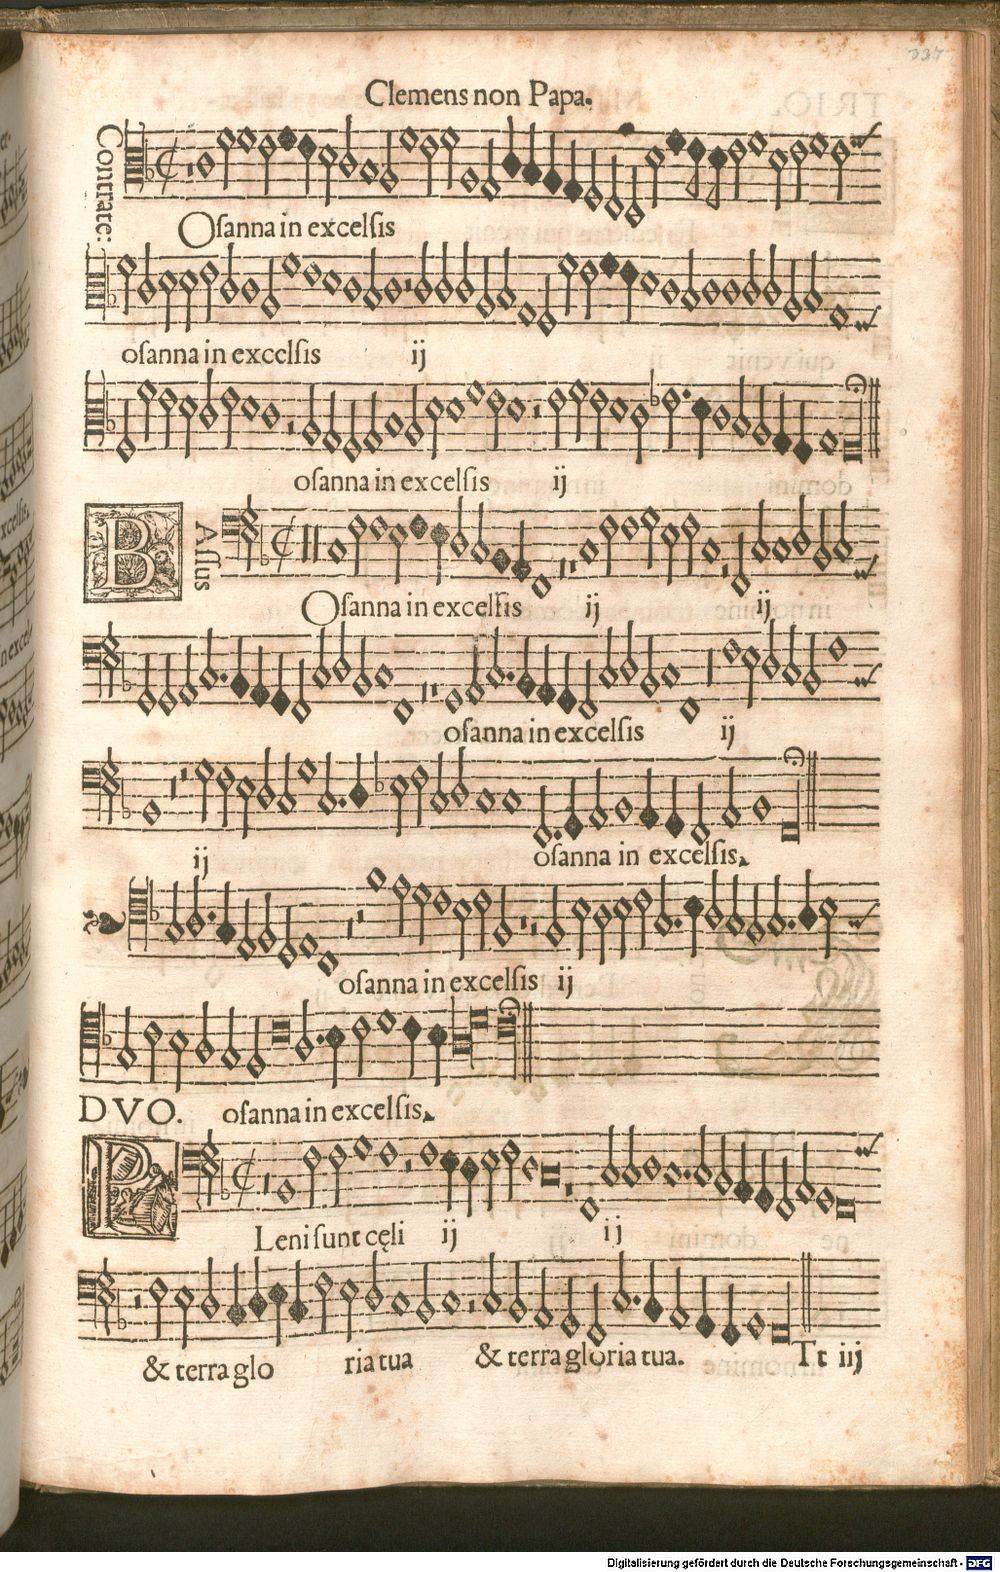 337
Clemens non Papa.
Contrate:
Osanna in excelsis
osanna in excelsis ij
osanna in excelsis ij
BAssus
Osanna in excelsis ij ij
osanna in excelsis ij
ij osanna in excelsis.
osanna in excelsis ij
DVO. osanna in excelsis.
PLeni sunt cęli ij ij
& terra glo ria tua & terra gloria tua. Tt iij
Digitalisierung gefördert durch die Deutsche Forschungsgemeinschaft - DFG